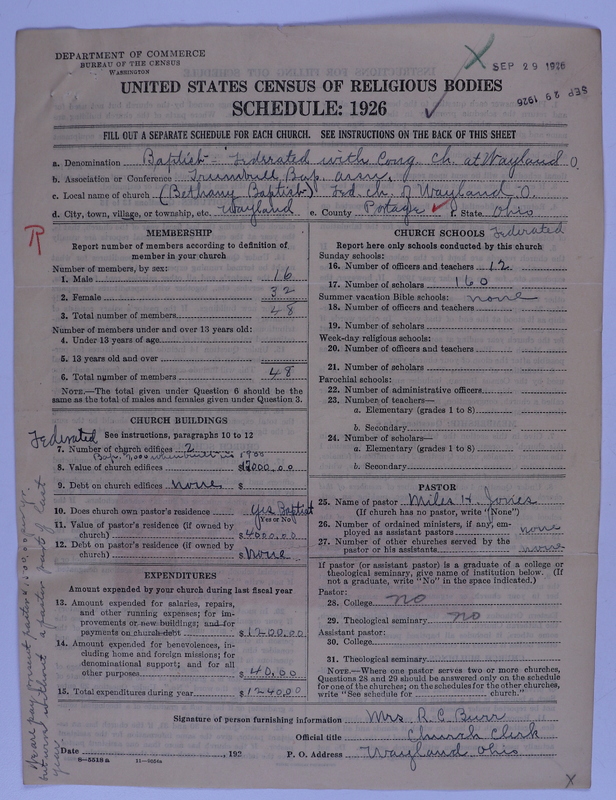 DEPARTMENT OF COMMERCE
BUREAU OF THE CENSUS
WASHINGTON
SEP 29 1926
SEP 29 1926
UNITED STATES CENSUS OF RELIGIOUS BODIES
SCHEDULE: 1926
FILL OUT A SEPARATE SCHEDULE FOR EACH CHURCH. SEE INSTRUCTIONS ON THE BACK OF THIS SHEET
a. Denomination Baptist - Federated with Cong. Ch. at Wayland O.
b. Association or Conference Trumbull Bap. assn.
c. Local name of church (Bethany Baptist) Fed. ch. of Wayland O.
d. City, town, village, or township, etc. Wayland e. County Portage f. State Ohio
R
MEMBERSHIP
Report number of members according to definition of member in your church
Number of members, by sex:
1. Male 16
2. Female 32
3. Total number of members 48
Number of members under and over 13 years old:
4. Under 13 years of age
5. 13 years old and over
6. Total number of members 48
NOTE.—The total given under Question 6 should be the same as the total of males and females given under Question 3.
CHURCH BUILDINGS
Federated See instructions, paragraphs 10 to 12
7. Number of church edifices 2
8. Value of church edifices
9. Debt on church edifices none $
10. Does church own pastor's residence yes Baptist
(Yes or No)
11. Value of pastor's residence (if owned by church) $4000.00
12. Debt on pastor's residence (if owned by church) $ None
EXPENDITURES
Amount expended by your church during last fiscal year
13. Amount expended for salaries, repairs, and other running expenses; for improvements or new buildings; and for payments on church debt $1200.00
14. Amount expended for benevolences, including home and foreign missions; for denominational support; and for all other purposes $40.00
15. Total expenditures during year $1240.00
CHURCH SCHOOLS Federated
Report here only schools conducted by this church
Sunday schools:
16. Number of officers and teachers 12
17. Number of scholars 160
Summer vacation Bible schools: none
18. Number of officers and teachers
19. Number of scholars
Week-day religious schools:
20. Number of officers and teachers
21. Number of scholars
Parochial schools:
22. Number of administrative officers
23. Number of teachers—
a. Elementary (grades 1 to 8)
b. Secondary
24. Number of scholars—
a. Elementary (grades 1 to 8)
b. Secondary
PASTOR
25. Name of pastor Miles H. Jones
(If church has no pastor, write "None")
26. Number of ordained ministers, if any, employed as assistant pastors none
27. Number of other churches served by the pastor or his assistants none
If pastor (or assistant pastor) is a graduate of a college or theological seminary, give name of institution below. (If not a graduate, write "No" in the space indicated.)
Pastor:
28. College no
29. Theological seminary no
Assistant pastor:
30. College
31. Theological seminary
NOTE.—Where one pastor serves two or more churches, Questions 28 and 29 should be answered only on the schedule for one of the churches; on the schedules for the other churches, write "See schedule for church."
Signature of person furnishing information Mrs. R. C. Burr
Official title Church Clerk
Date , 192 P. O. Address Wayland Ohio
8-5518a 11-9824a
X